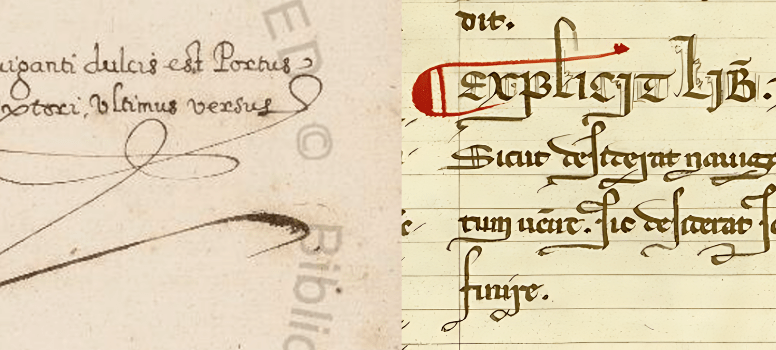 uiganti dulcis est Portus
xtori, Vltimus versus
ED ©
Biblio
dit.
Explicit lib̄.
Sicut desiderat nauig
tum uenire. Sic desiderat
finire.